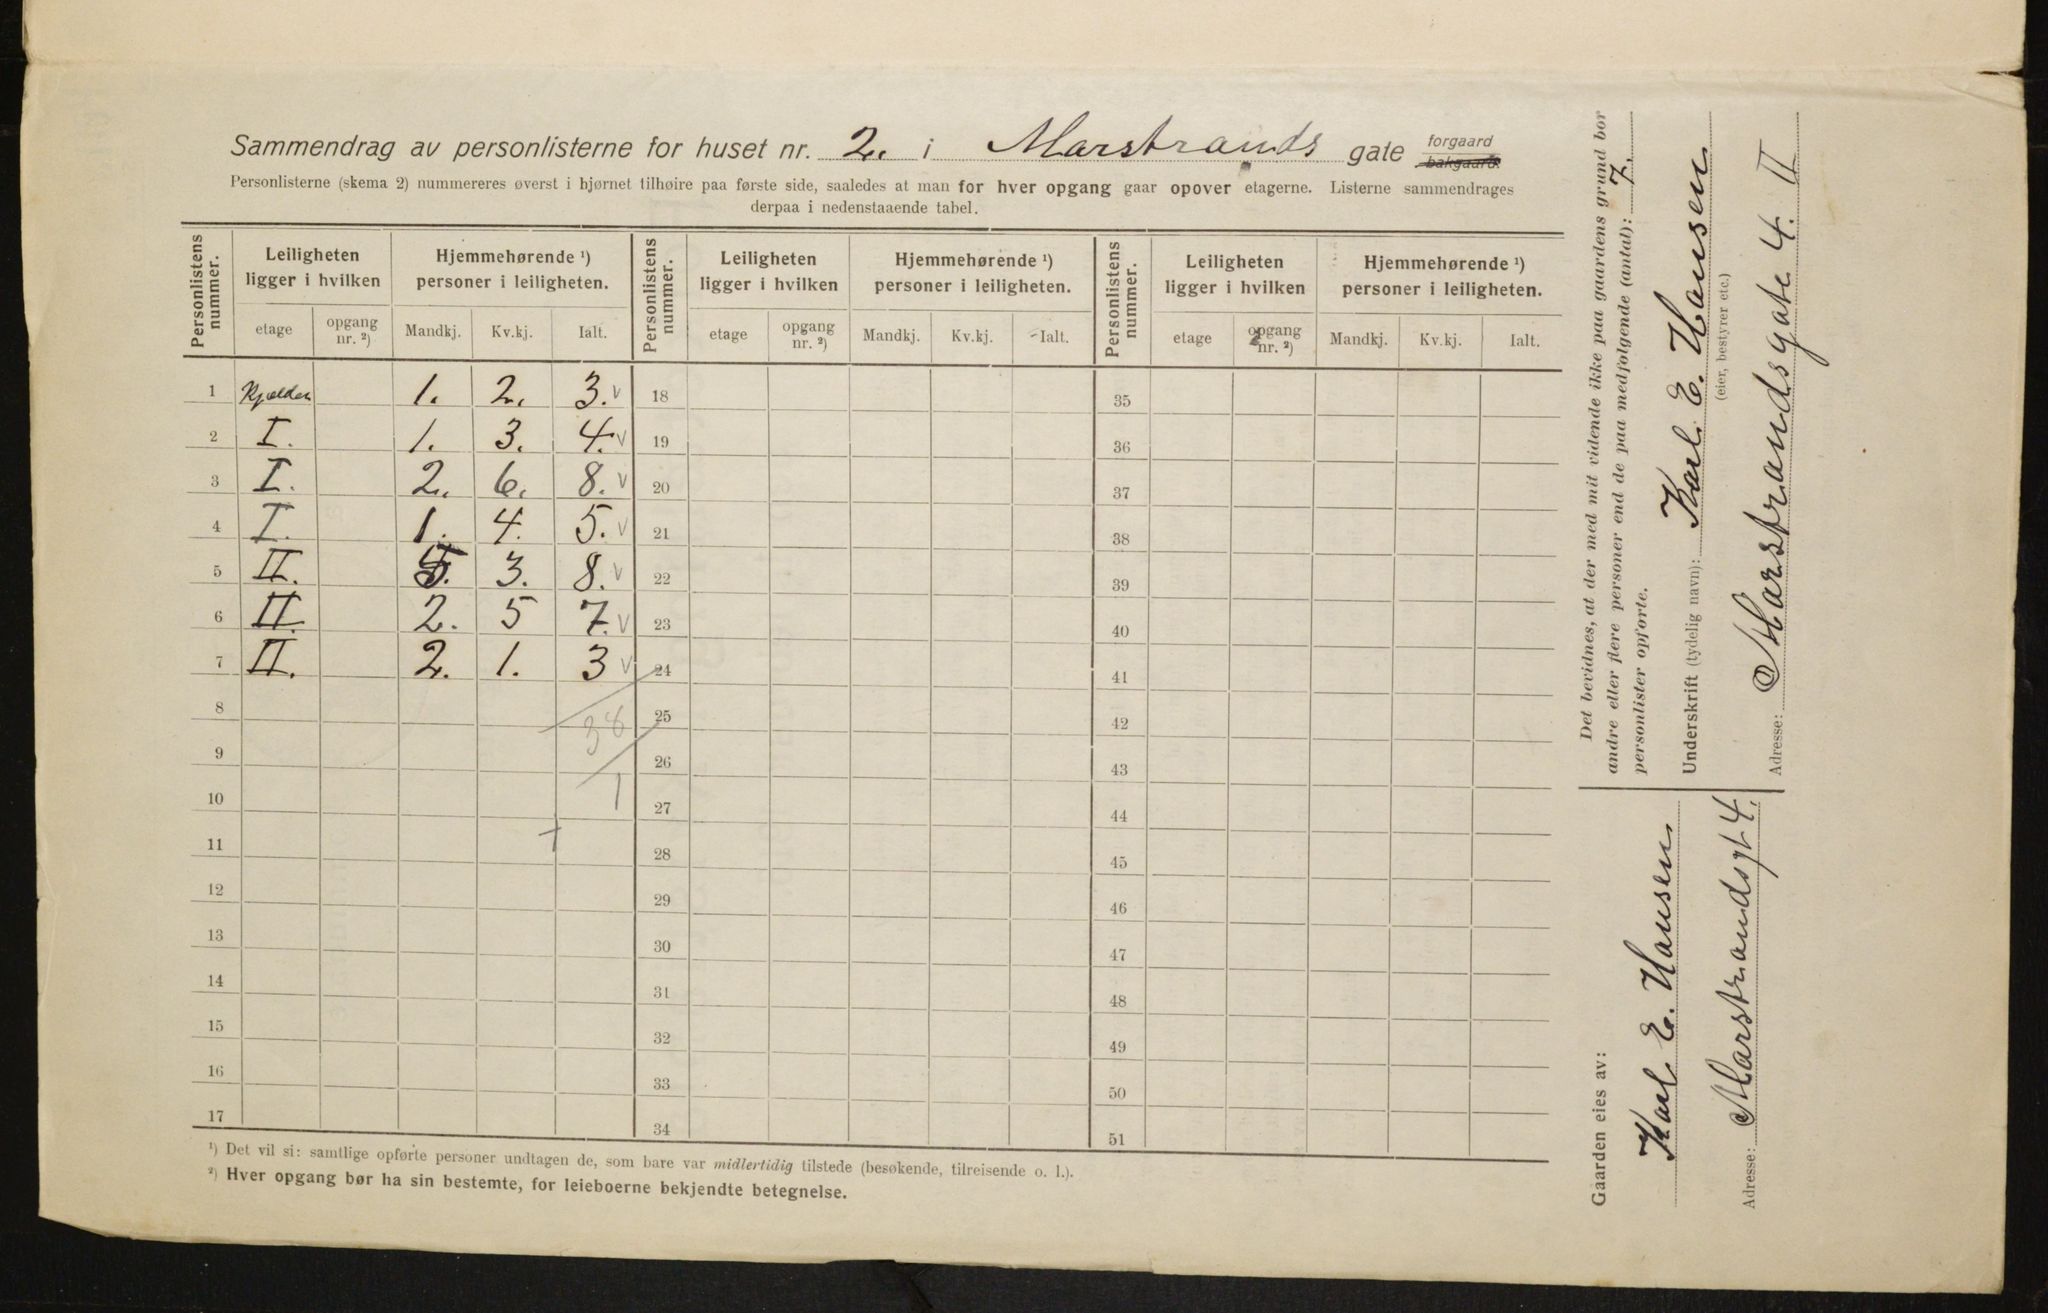 Sammendrag av personlisterne for huset nr. 2. i Marstrands gate forgaard bakgaard.
Personlisterne (skema 2) nummereres øverst i hjørnet tilhøire paa første side, saaledes at man for hver opgang gaar opover etagerne. Listerne sammendrages
derpaa i nedenstaaende tabel.
Personlistens nummer. Leiligheten ligger i hvilken Hjemmehørende ¹) personer i leiligheten. Personlistens nummer. Leiligheten ligger i hvilken Hjemmehørende ¹) personer i leiligheten. Personlistens nummer. Leiligheten ligger i hvilken Hjemmehørende ¹) personer i leiligheten.
etage opgang nr. ²) Mandkj. Kv.kj. Ialt. etage opgang nr. ²) Mandkj. Kv.kj. Ialt. etage opgang nr. ²) Mandkj. Kv.kj. Ialt.
1 Kjelder 1. 2. 3. v 18 35
2 I. 1. 3. 4. v 19 36
3 I. 2. 6. 8. v 20 37
4 I. 1. 4. 5. v 21 38
5 II. 5. 3. 8. v 22 39
6 II. 2. 5 7. v 23 40
7 II. 2. 1. 3 v 24 41
8 38 25 42
9 26 43
10 1 27 44
11 28 45
12 29 46
13 30 47
14 31 48
15 32 49
16 33 50
17 34 51
¹) Det vil si: samtlige opførte personer undtagen de, som bare var midlertidig tilstede (besøkende, tilreisende o. l.).
²) Hver opgang bør ha sin bestemte, for leieboerne bekjendte betegnelse.
Det bevidnes, at der med mit vidende ikke paa gaardens grund bor
andre eller flere personer end de paa medfølgende (antal): 7.
personlister opførte.
Underskrift (tydelig navn): Karl E. Hansen
(eier, bestyrer etc.)
Adresse: Marstrandsgate 4. II
Gaarden eies av:
Karl E. Hansen
Adresse: Marstrandsgt 4.